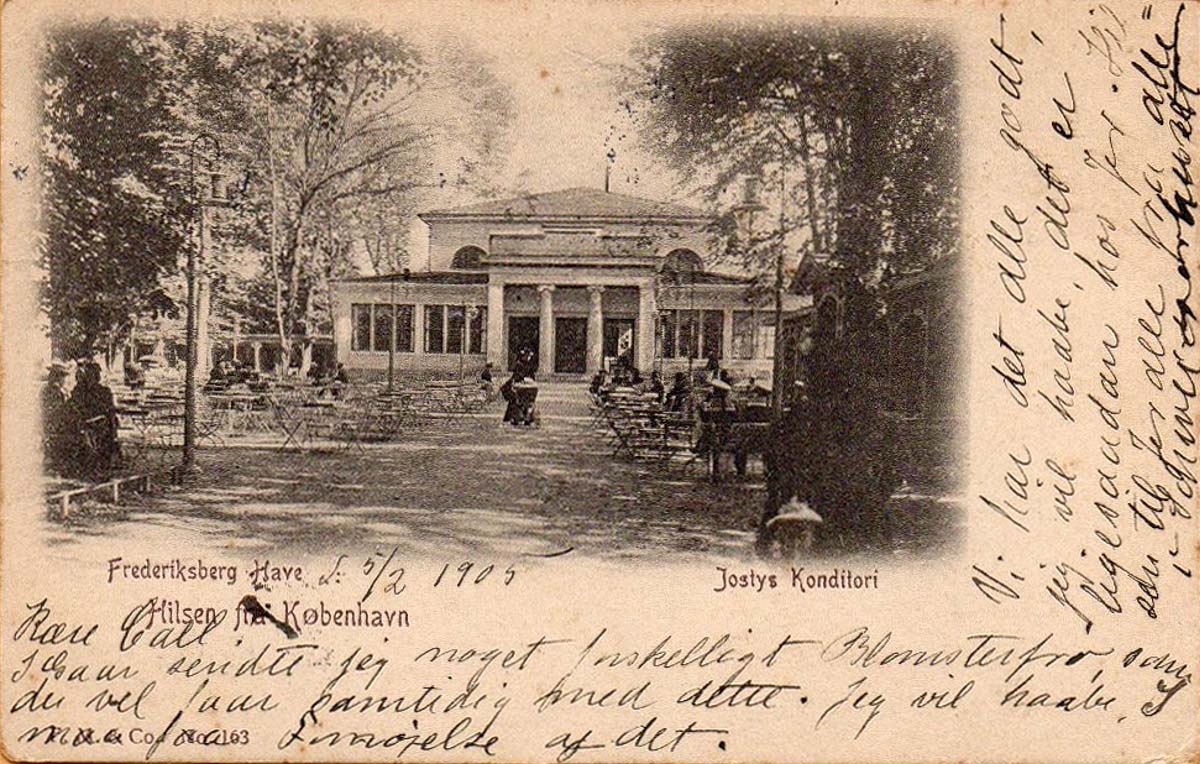 Frederiksberg Have d: 5/2 1905
Jostys Konditori
Hilsen fra København
Kære Carl!
I Gaar sendte jeg noget forskelligt Blomsterfrø, som
du vel faar samtidig med dette. Jeg vil haabe, I
maa faa Fornøjelse af det.
& Co. No. 163
Vi har det alle godt,
jeg vil haabe, det er
ligesaadan hos Jer. Hil=
sen til Jer alle fra alle
i